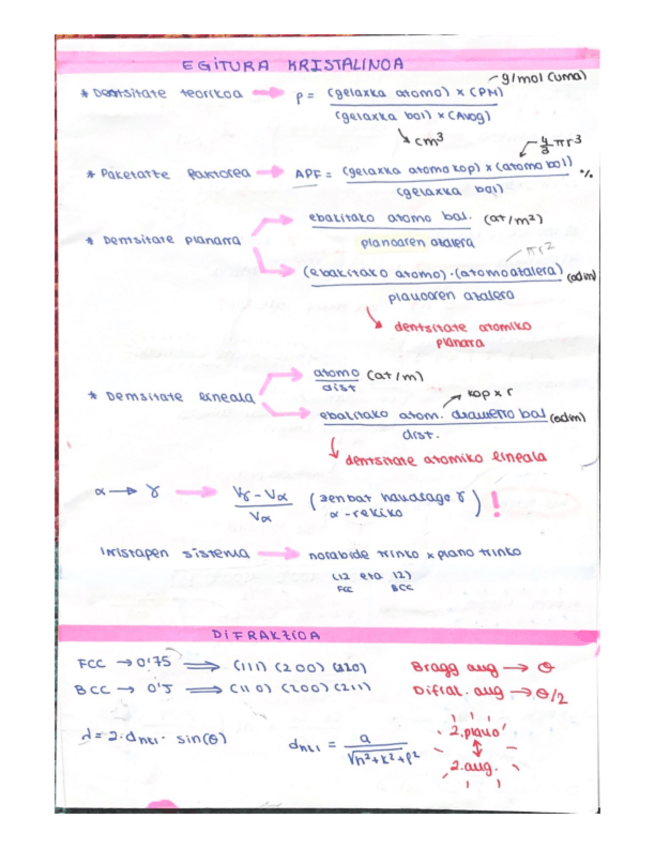 EGITURA KRISTALINOA
* Dentsitate teorikoa → ρ = (gelaxka atomo) x (PM) / (gelaxka bol) x (Avog)
g/mol (uma)
cm³
* Paketatte faktorea → APF = (gelaxka atomo kop) x (atomo bol) / (gelaxka bol) %
4/3 πr³
* Dentsitate planarra → ebakitako atomo bal. / planoaren azalera (at/m²)
→ (ebakitako atomo) · (atomo azalera) / planoaren azalera (adim)
πr²
dentsitate atomiko
planarra
* Dentsitate lineala → atomo / dist (at/m)
→ ebakitako atom. diametro bal / dist. (adim)
kop x r
dentsitate atomiko lineala
α → γ → Vγ - Vα / Vα (zenbat haundiago γ α-rekiko) !
Irristapen sistema → norabide trinko x plano trinko
(12 eta 12)
FCC BCC
DIFRAKZIOA
FCC → 0'75 ⇒ (111) (200) (220)
BCC → 0'5 ⇒ (110) (200) (211)
Bragg ang → θ
Difrak. ang → θ/2
λ = 2·dhkl · sin(θ)
dhkl = a / √h²+k²+l²
2. plano
↕
2. ang.